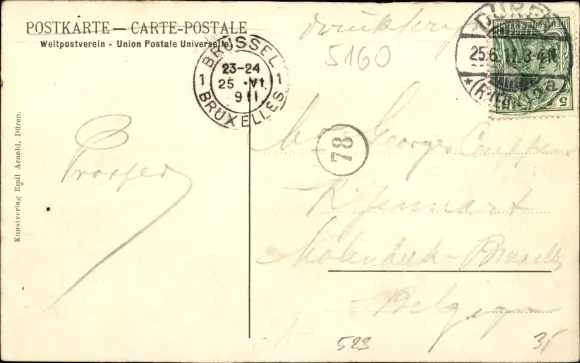 POSTKARTE — CARTE-POSTALE
Weltpostverein - Union Postale Universelle
Kunstverlag Emil Arnold, Düren.
BRÜSSEL
1 23-24 1
25 VI
911
BRUXELLES
DÜREN
25.6.11. 3-4N
5
5160
78
Mr Georges
R. Jennart
Molenbeek - Bruxelles
Belgique
523
35